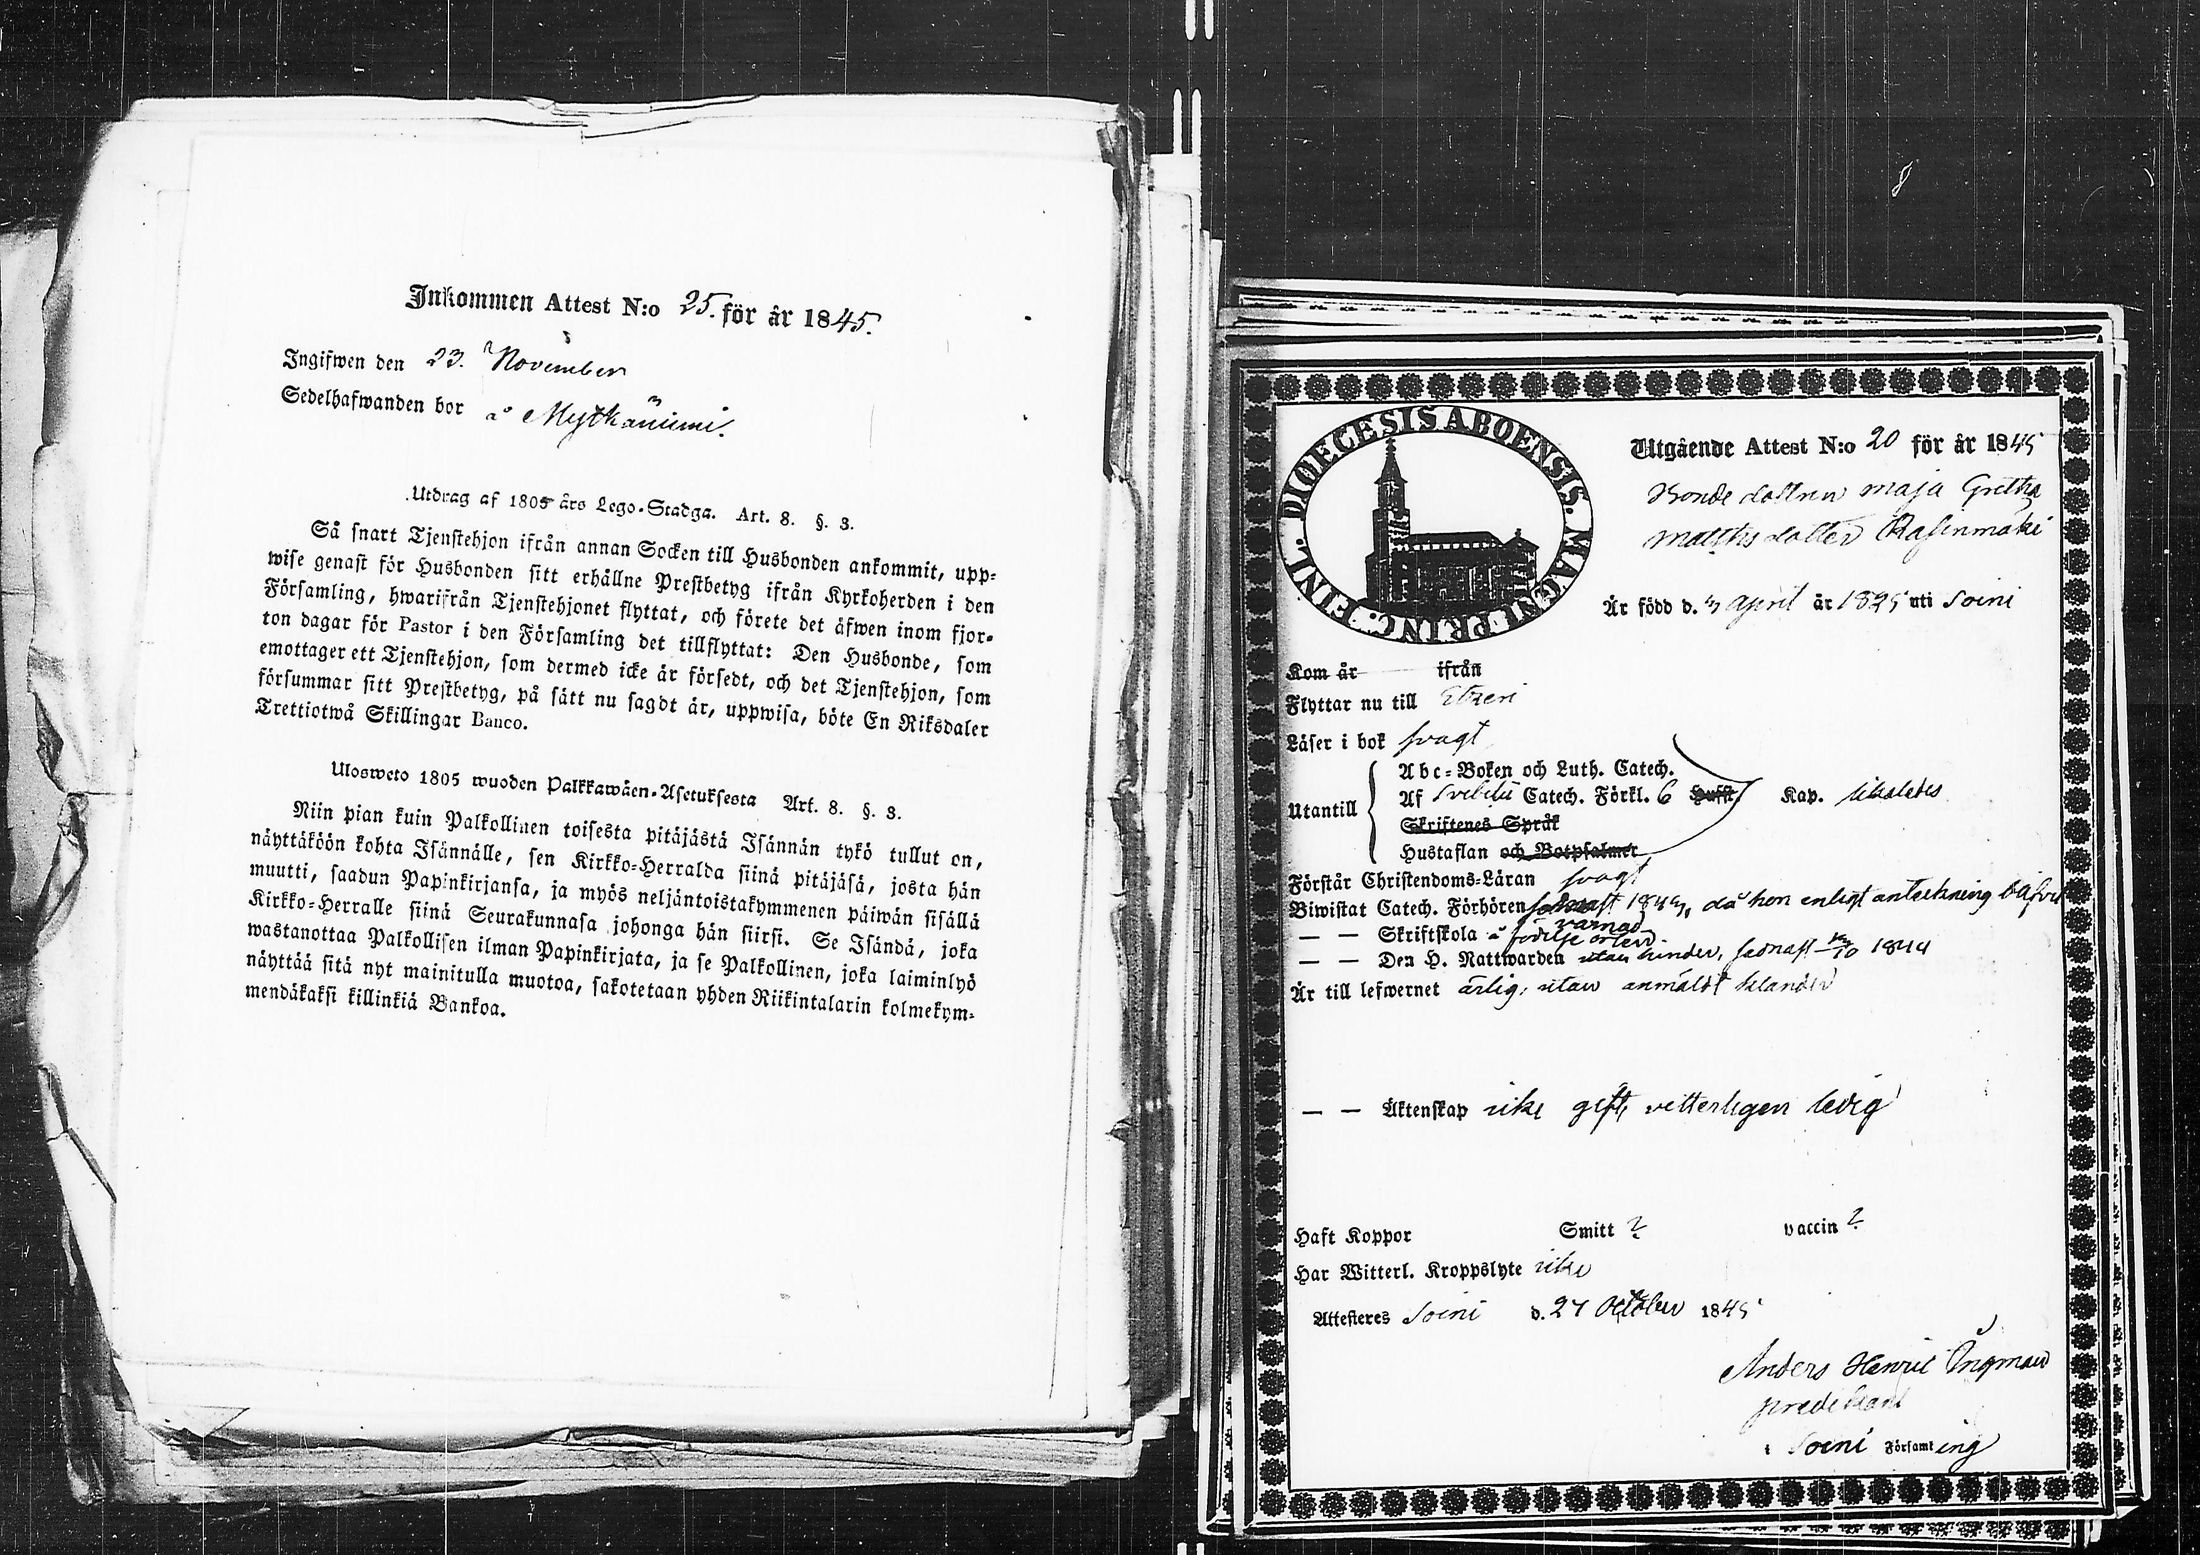 Inkommen Attest N:o 25. för år 1845.
Ingifwen den 23. November
Sedelhafwanden bor å Mytkäniemi.
Utdrag af 1805 års Lego-Stadga. Art. 8. §. 3.
Så snart Tjenstehjon ifrån annan Socken till Husbonden ankommit, upp-
wise genast för Husbonden sitt erhållne Prestbetyg ifrån Kyrkoherden i den
Församling, hwarifrån Tjenstehjonet flyttat, och förete det äfwen inom fjor-
ton dagar för Pastor i den Församling det tillflyttat: Den Husbonde, som
emottager ett Tjenstehjon, som dermed icke är försedt, och det Tjenstehjon, som
försummar sitt Prestbetyg, på sätt nu sagdt är, uppwisa, böte En Riksdaler
Trettiotwå Skillingar Banco.
Ulosweto 1805 wuoden Palkkawäen-Asetuksesta Art. 8. §. 3.
Niin pian kuin Palkollinen toisesta pitäjästä Isännän tykö tullut on,
näyttäköön kohta Isännälle, sen Kirkko-Herralda siinä pitäjäsä, josta hän
muutti, saadun Papinkirjansa, ja myös neljäntoistakymmenen päiwän sisällä
Kirkko-Herralle siinä Seurakunnasa johonga hän siirsi. Se Isändä, joka
wastanottaa Palkollisen ilman Papinkirjata, ja se Palkollinen, joka laiminlyö
näyttää sitä nyt mainitulla muotoa, sakotetaan yhden Riikintalarin kolmekym-
mendäkaksi killinkiä Bankoa.
DIOECESIS ABOENSIS. MAGNI PRINC. FINL.
Utgående Attest N:o 20 för år 1845
Bonde dottren Maja Gretha
Matths dotter Rasinmäki
Är född d. 3 April år 1825 uti Soini
Kom år ifrån
Flyttar nu till Etseri
Läser i bok svagt
Abc-Boken och Luth. Catech.
Utantill Af Svebilii Catech. Förkl. 6 Hufst Kap. likaledes
Skriftenes Språk
Hustaflan och Botpsalmer
Förstår Christendoms-Läran svagt
Biwistat Catech. Förhören sednast då hon enligt anteckning blifvit
varnad
— — Skriftskola å födelse orten
— — Den H. Nattwarden utan hinder, sednast 1844
Är till lefwernet ärlig, utan anmäldt klander
— — Äktenskap icke gift, vetterligen ledig
Haft Koppor Smitt ? vaccin ?
Har Witterl. Kroppslyte icke
Attesteres Soini d. 27 October 1845
Anders Henric Ingman
predikant
i Soini Församling